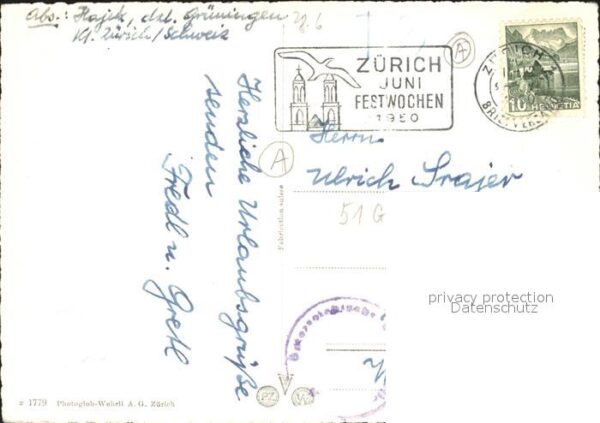 Abs.: Hajek, dzt. Grüningen
Kt. Zürich/Schweiz
Herzliche Urlaubsgrüße
senden
Fredl u. Gretl
ZÜRICH
JUNI
FESTWOCHEN
1950
ZÜRICH
10 HELVETIA
A
A
Herrn
Ulrich Srajer
51 G
Fabrication suisse
privacy protection
Datenschutz
z 1779 Photoglob-Wehrli A. G. Zürich
PZ W